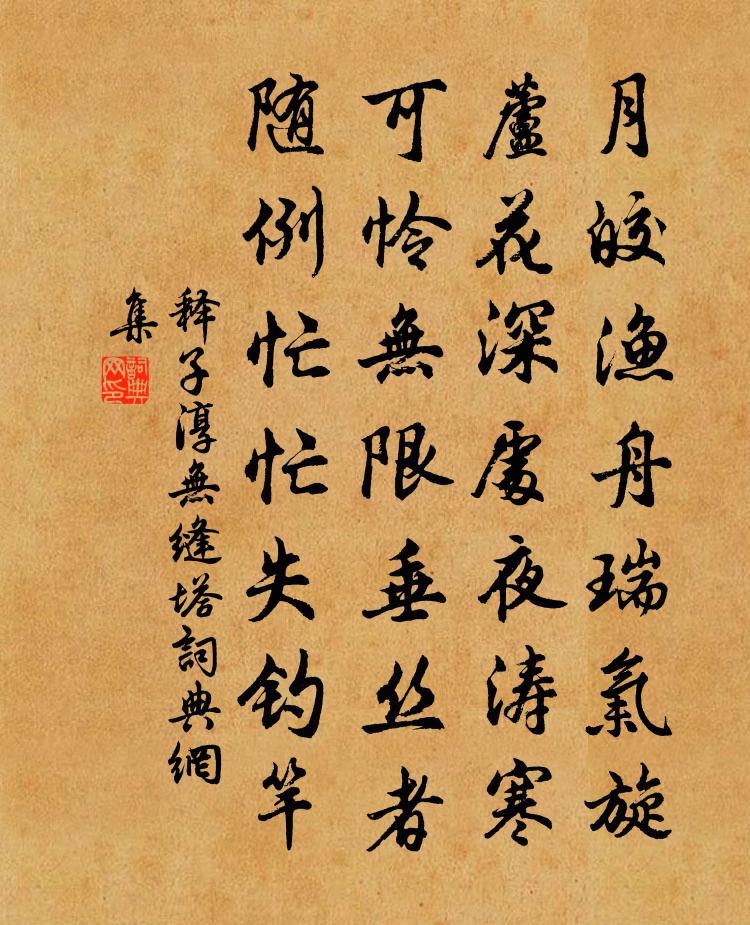 月皎渔舟瑞氣旋
蘆花深處夜涛寒
可怜無限垂丝者
随例忙忙失钓竿
释子淳無縫塔詞典網
集
詞典网印